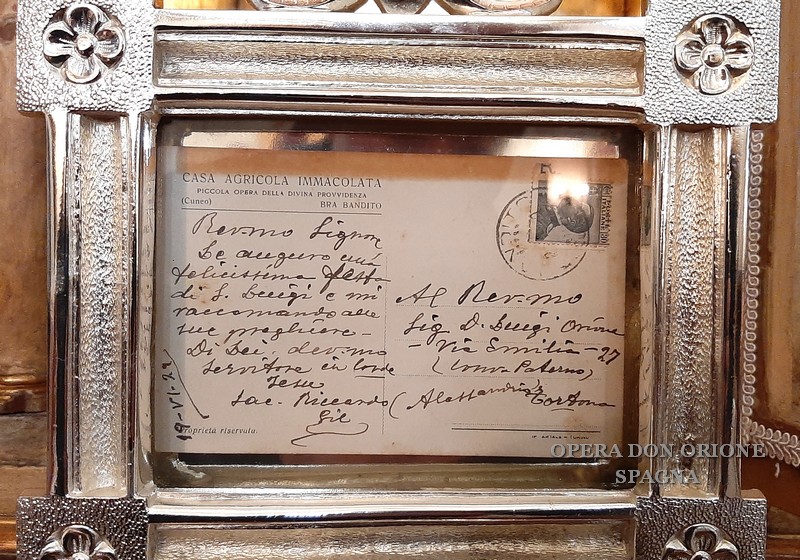 CASA AGRICOLA IMMACOLATA
PICCOLA OPERA DELLA DIVINA PROVVIDENZA
(Cuneo) BRA BANDITO
Rev-mo Signor
Le auguro una
felicissima festa
di S. Luigi e mi
raccomando alle
sue preghiere -
Di Lei, dev-mo
servitore in Corde
Jesu
Sac. Riccardo
Gil
19-VI-22
Proprietà riservata.
Al Rev-mo
Sig. D. Luigi Orione
- Via Emilia - 27
(Alessandria)
Tortona
OPERA DON ORIONE
SPAGNA